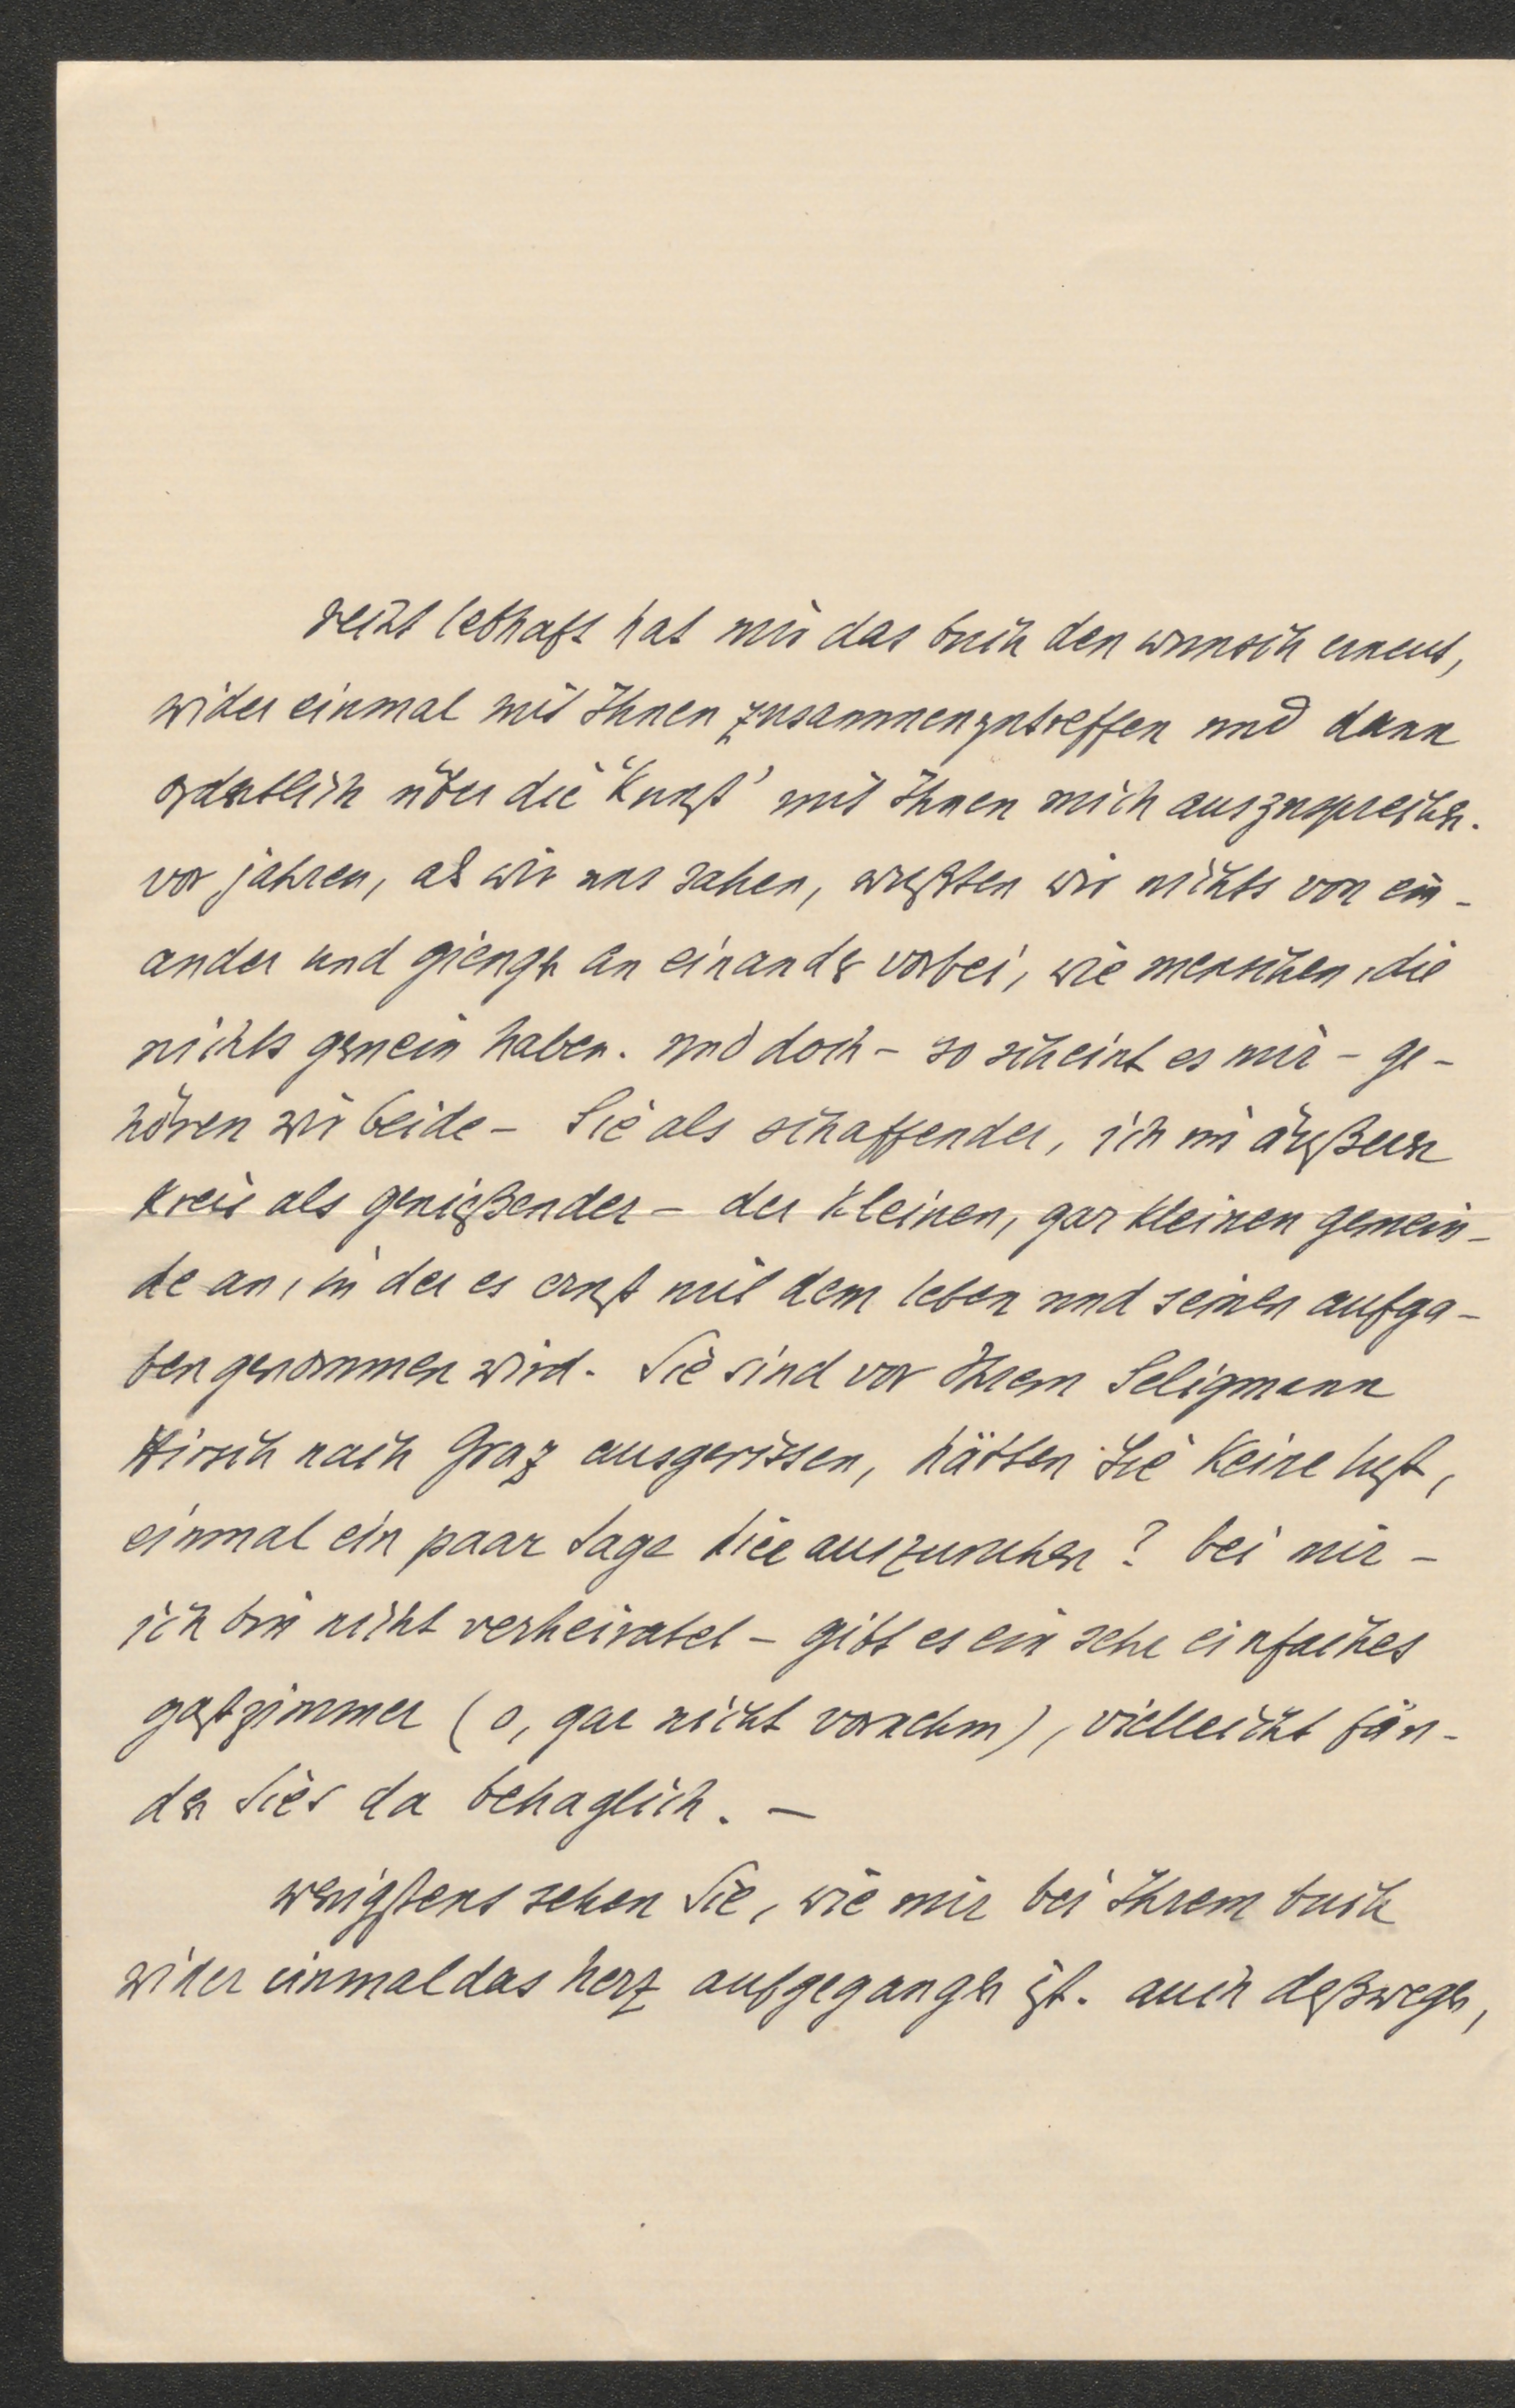 recht lebhaft hat mir das buch den wunsch erneut,
wider einmal mit Ihnen zusammenzutreffen und dann
ordentlich über die 'kunst' mit Ihnen mich auszusprechen.
vor jahren, als wir uns sahen, wußten wir nichts von ein-
ander und giengen an einander vorbei, wie menschen, die
nichts gemein haben. und doch - so scheint es mir - ge-
hören wir beide - Sie als schaffender, ich im äußern
kreis als genießender - der kleinen, gar kleinen gemein-
de an, in der es ernst mit dem leben und seinen aufga-
ben genommen wird. Sie sind vor Ihrem Seligmann
Hirsch nach Graz ausgerissen, hätten Sie keine lust,
einmal ein paar tage hier auszuruhen? bei mir -
ich bin nicht verheiratet - gibt es ein sehr einfaches
gastzimmer (o, gar nicht vornehm), vielleicht fän-
den Sies da behaglich. -
wenigstens sehen Sie, wie mir bei Ihrem buch
wider einmal das herz aufgegangen ist. auch deßwegen,